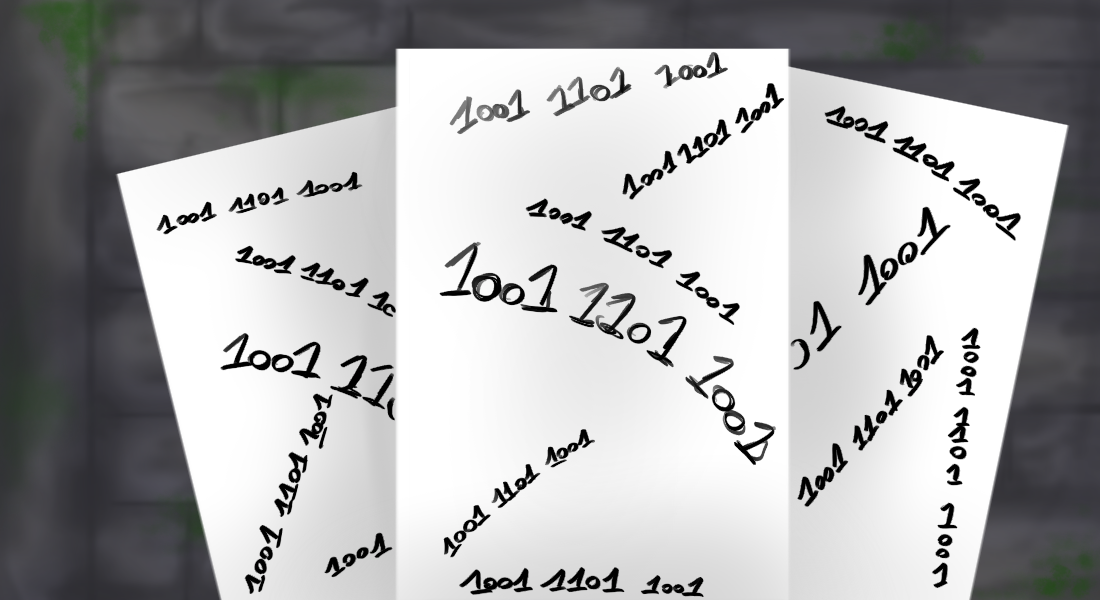 1001 1101 1001
1001 1101 1001
1001 11
1001 1101 1001
1001
1001 1101 1001
1001 1101 1001
1001 1101 1001
1001 1101 1001
1001 1101 1001
1001 1101 1001
1001 1101 1001
01 1001
1001 1101 1001
1001 1101 1001